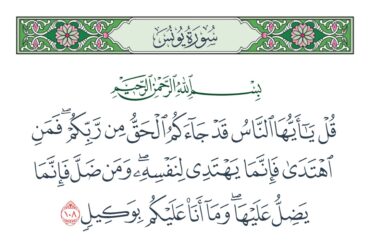 سُورَةُ يُونُسَ
بِسْمِ اللَّهِ الرَّحْمَٰنِ الرَّحِيمِ
قُلْ يَٰٓأَيُّهَا ٱلنَّاسُ قَدْ جَآءَكُمُ ٱلْحَقُّ مِن رَّبِّكُمْ ۖ فَمَنِ
ٱهْتَدَىٰ فَإِنَّمَا يَهْتَدِى لِنَفْسِهِۦ ۖ وَمَن ضَلَّ فَإِنَّمَا
يَضِلُّ عَلَيْهَا ۖ وَمَآ أَنَا۠ عَلَيْكُم بِوَكِيلٍ ١٠٨